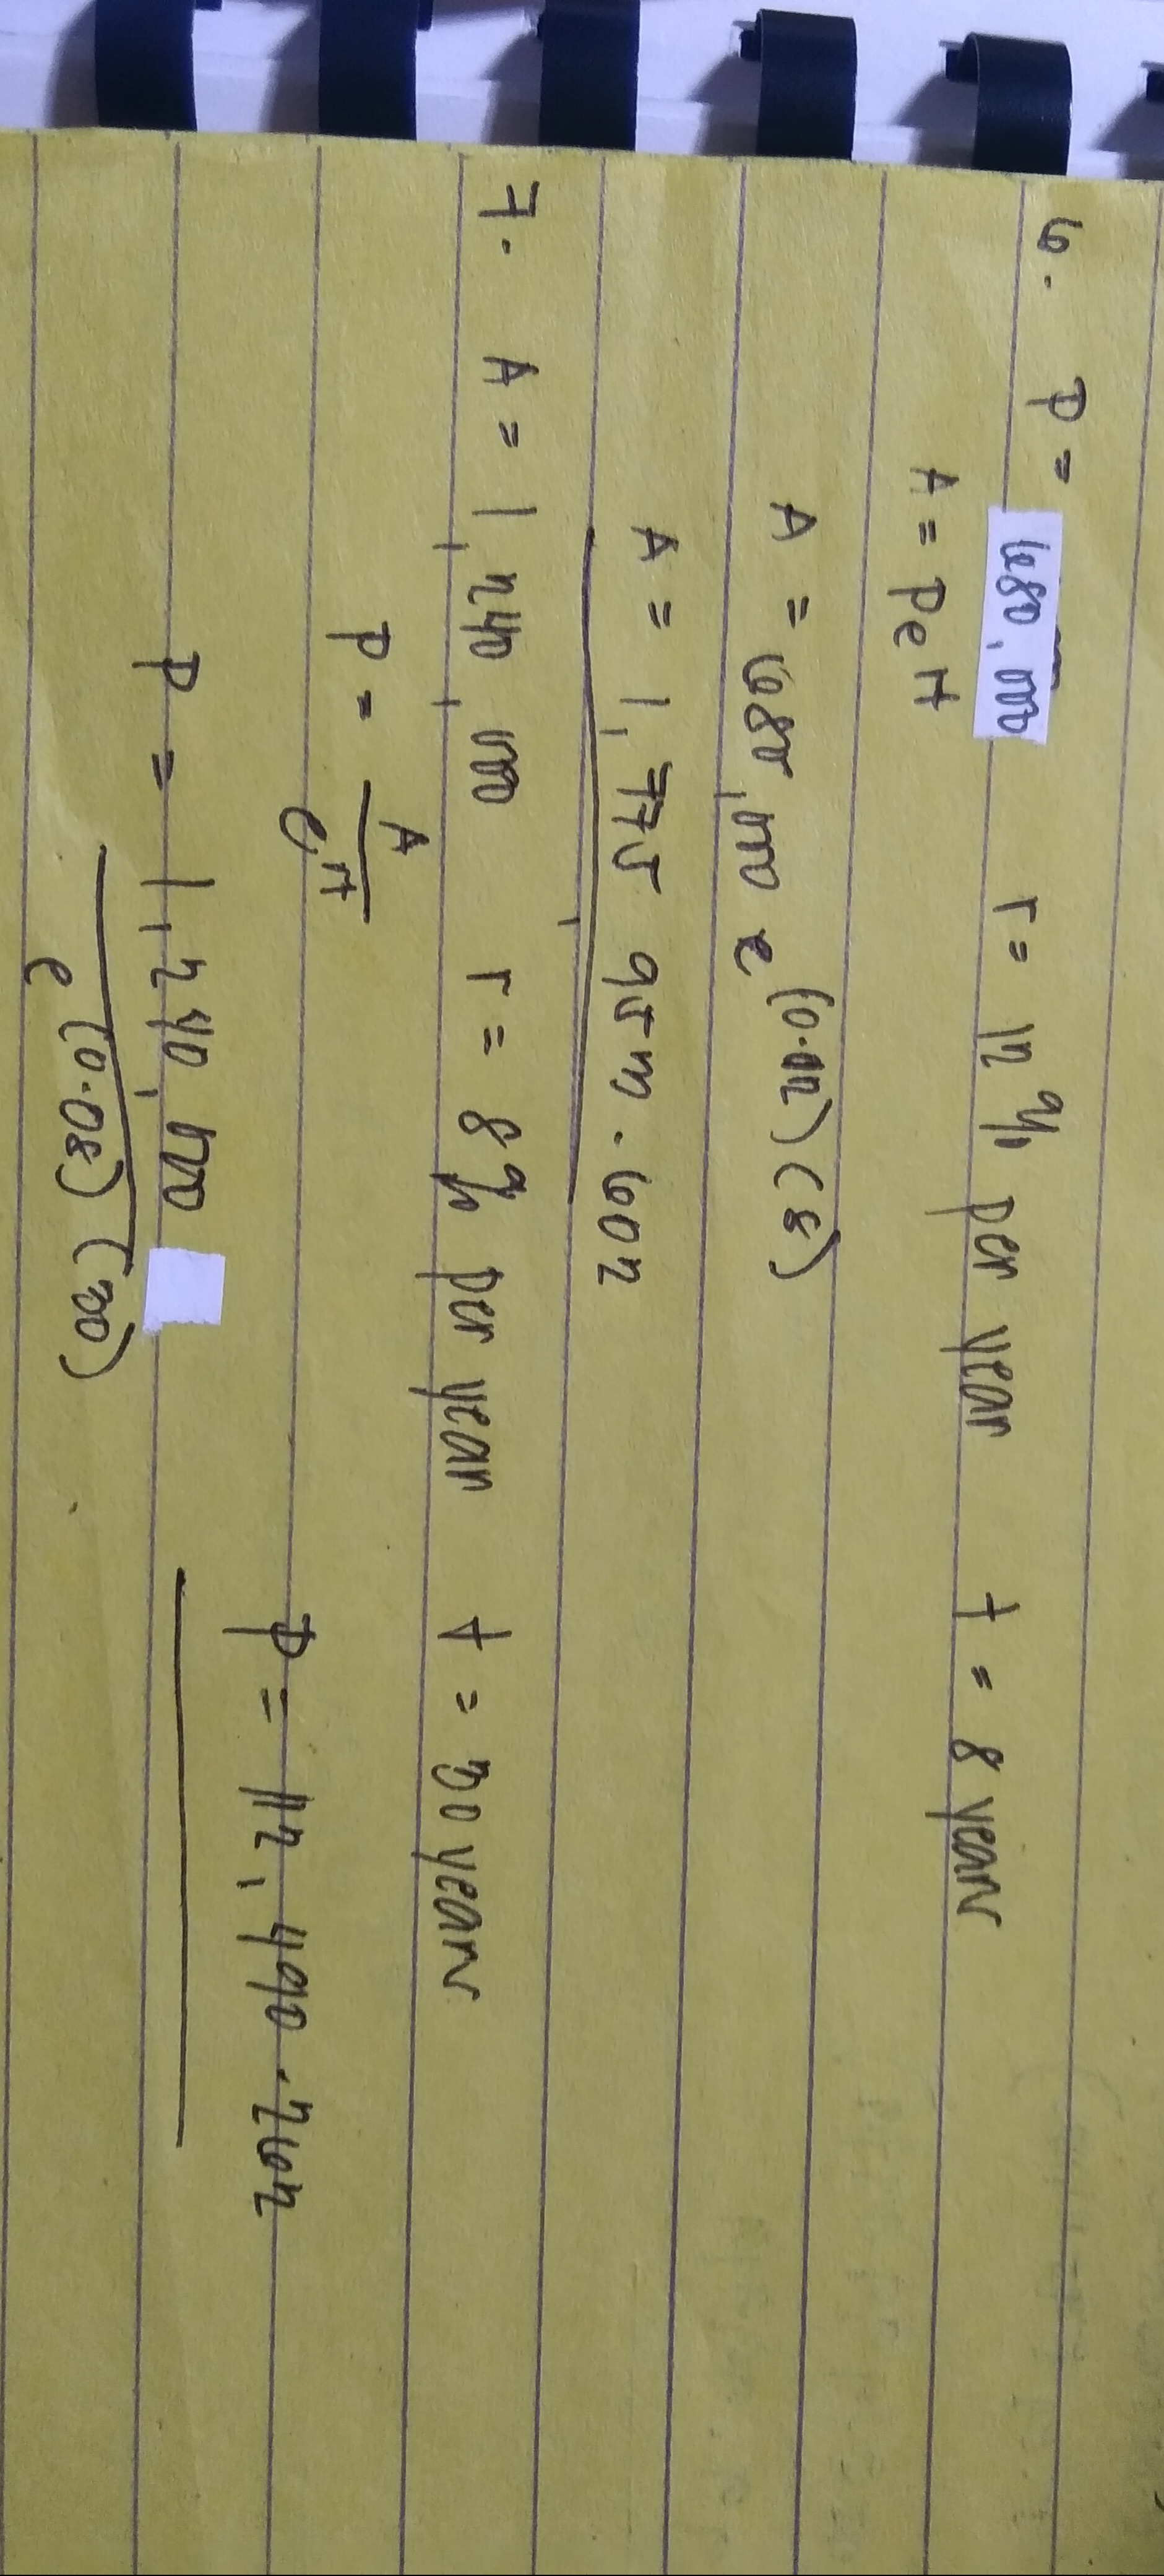 6. P = 680,000 r = 12% per year t = 8 years
A = Pe^rt
A = 680,000 e^(0.12)(8)
A = 1,775,953.602
7. A = 1,240,000 r = 8% per year t = 30 years
P = A / e^rt
P = 1,240,000 / e^(0.08)(30)
P = 112,490.262